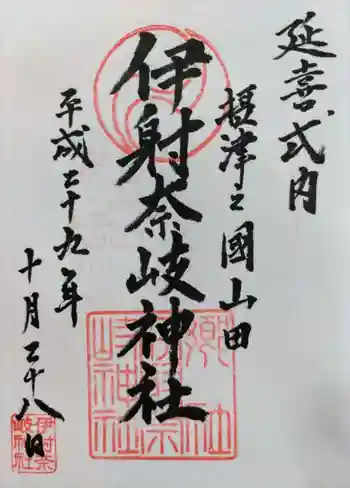 延喜式内
摂津之國山田
伊射奈岐神社
平成二十九年
十月二十八日
郷社
伊射奈
岐神社
伊射奈
岐神社